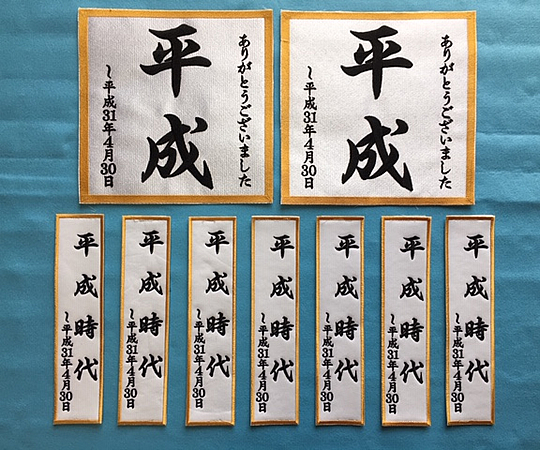 ありがとうございました
平成
～平成31年4月30日
ありがとうございました
平成
～平成31年4月30日
平成時代
～平成31年4月30日
平成時代
～平成31年4月30日
平成時代
～平成31年4月30日
平成時代
～平成31年4月30日
平成時代
～平成31年4月30日
平成時代
～平成31年4月30日
平成時代
～平成31年4月30日